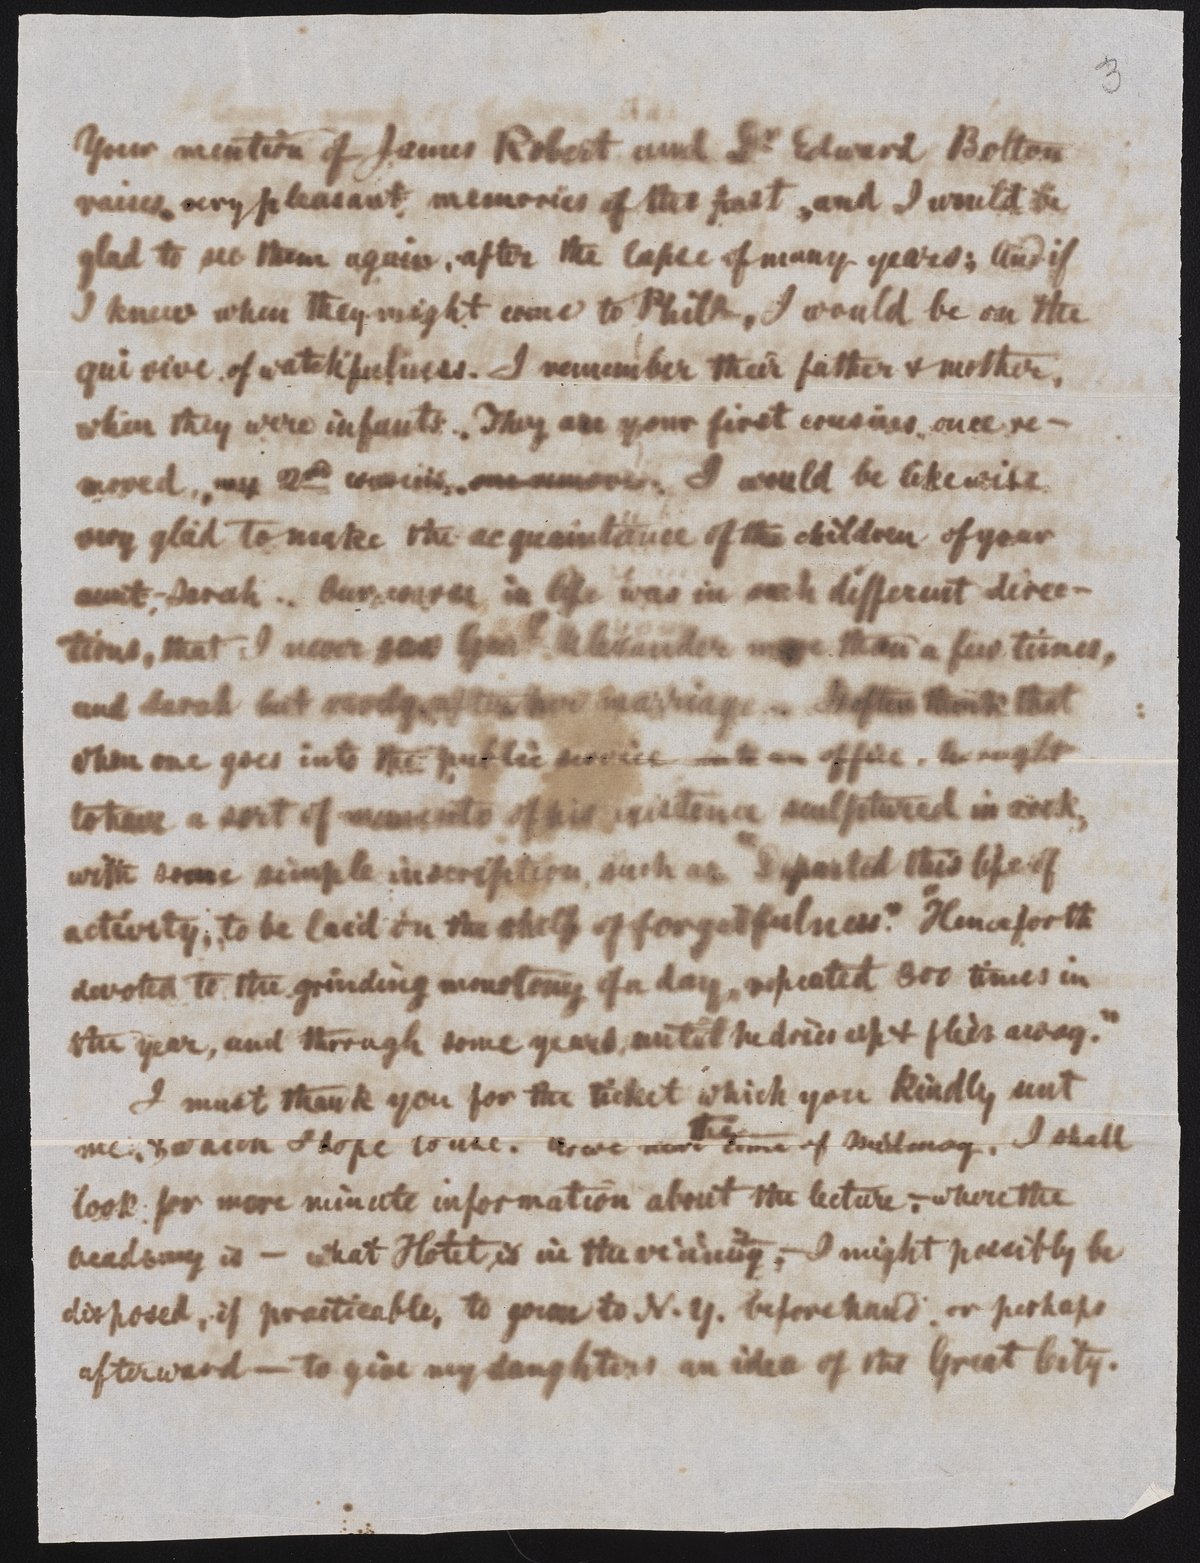 3
Your mention of James Robert and Dr Edward Bolton
raises very pleasant memories of the past, and I would be
glad to see them again, after the lapse of many years; And if
I knew when they might come to Phila, I would be on the
qui vive of watchfulness. I remember their father & mother,
when they were infants. They are your first cousins once re-
moved, my 2nd cousins one remove. I would be likewise
very glad to make the acquaintance of the children of your
aunt, Sarah. Our course in life was in such different direc-
tions, that I never saw Genl Alexander more than a few times,
and Sarah but rarely after her marriage. I often think that
when one goes into the public service in an office, he ought
to have a sort of memento of his existence sculptured in rock,
with some simple inscription, such as "Departed this life of
activity, to be laid on the shelf of forgetfulness." "Henceforth
devoted to the grinding monotony of a day, repeated 300 times in
the year, and through some years, until he dries up & flies away."
I must thank you for the ticket which you kindly sent
me, & which I hope to use. As we near the time of Midmay, I shall
look for more minute information about the lecture, - where the
academy is - what Hotel is in the vicinity, - I might possibly be
disposed, if practicable, to go on to N. Y. beforehand or perhaps
afterward - to give my daughters an idea of the Great City.